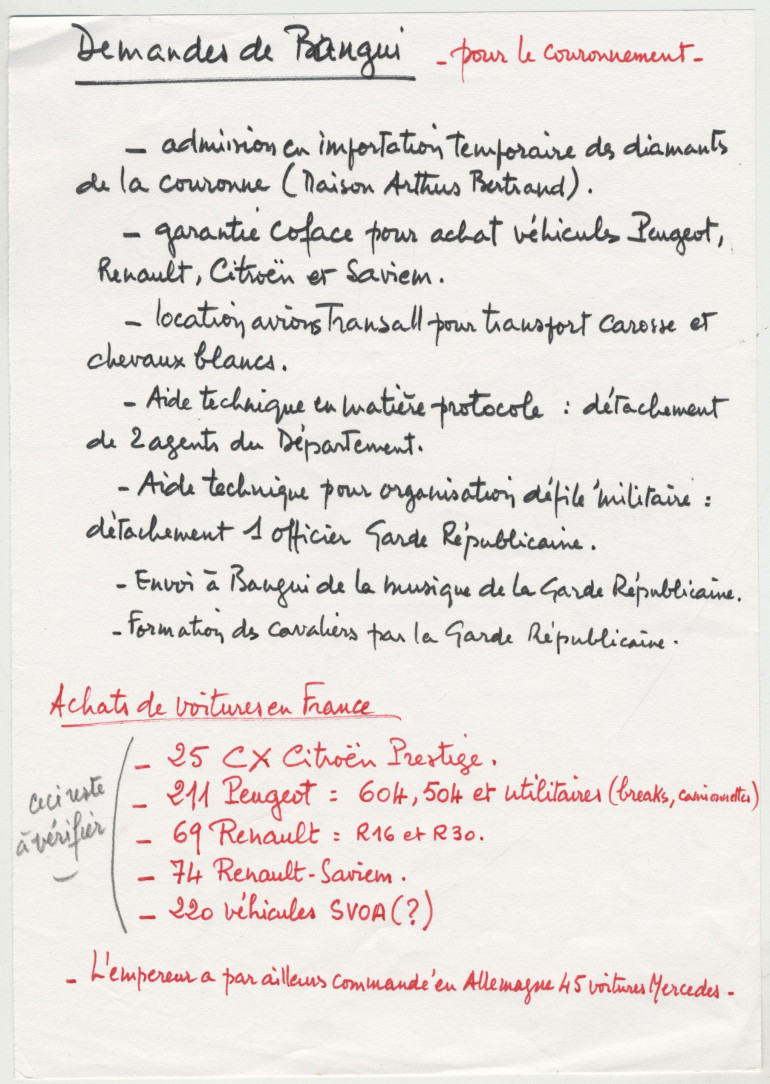 Demandes de Bangui - pour le couronnement -
- admission en importation temporaire des diamants
de la couronne (Maison Arthus Bertrand).
- garantie Coface pour achat véhicules Peugeot,
Renault, Citroën et Saviem.
- location avions Transall pour transport carosse et
chevaux blancs.
- Aide technique en matière protocole : détachement
de 2 agents du Département.
- Aide technique pour organisation défilé militaire :
détachement 1 officier Garde Républicaine.
- Envoi à Bangui de la musique de la Garde Républicaine.
- Formation des cavaliers par la Garde Républicaine.
Achats de voitures en France
ceci reste
à vérifier
- 25 CX Citroën Prestige.
- 211 Peugeot : 604, 504 et utilitaires (breaks, camionnettes)
- 69 Renault : R16 et R30.
- 74 Renault-Saviem.
- 220 véhicules SVOA (?)
- L'empereur a par ailleurs commandé en Allemagne 45 voitures Mercedes -